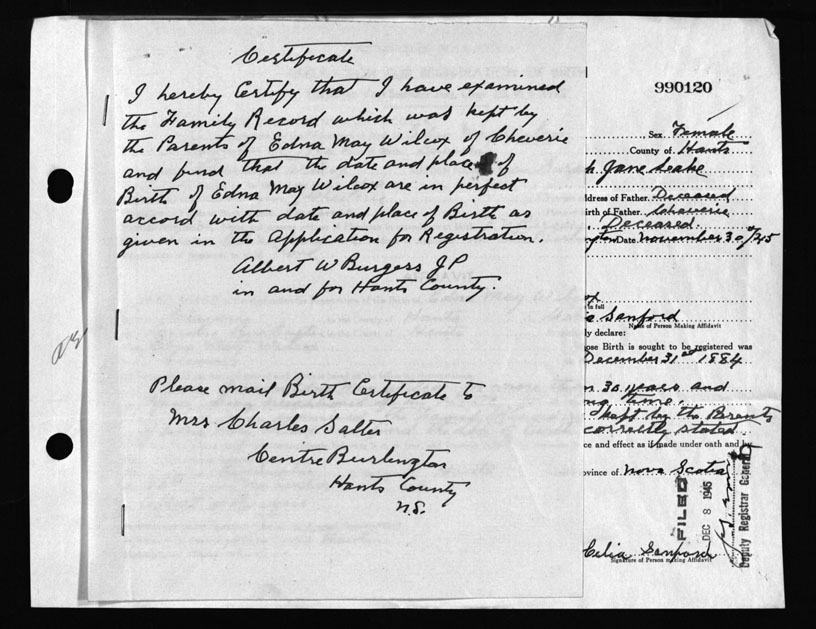 Certificate
I hereby Certify that I have examined
the Family Record which was kept by
the Parents of Edna May Wilcox of Cheverie
and find that the date and place of
Birth of Edna May Wilcox are in perfect
accord with date and place of Birth as
given in the Application for Registration.
Albert W Burgers J P
in and for Hants County.
Please mail Birth Certificate to
Mrs Charles Salter
Centre Burlington
Hants County
N.S.
990120
Sex Female
County of Hants
Jane Leake
ddress of Father Deceased
irth of Father. Cheverie
Deceased
Date November 30th/45
ox
in full
Sanford
Name of Person Making Affidavit
ly declare:
ose Birth is sought to be registered was
December 31st 1884
n 30 years and
ng time.
kept by the Parents
correctly stated
ce and effect as if made under oath and by
ovince of Nova Scotia
FILED
DEC 8 1945
Deputy Registrar General
Celia Sanford
Signature of Person making Affidavit